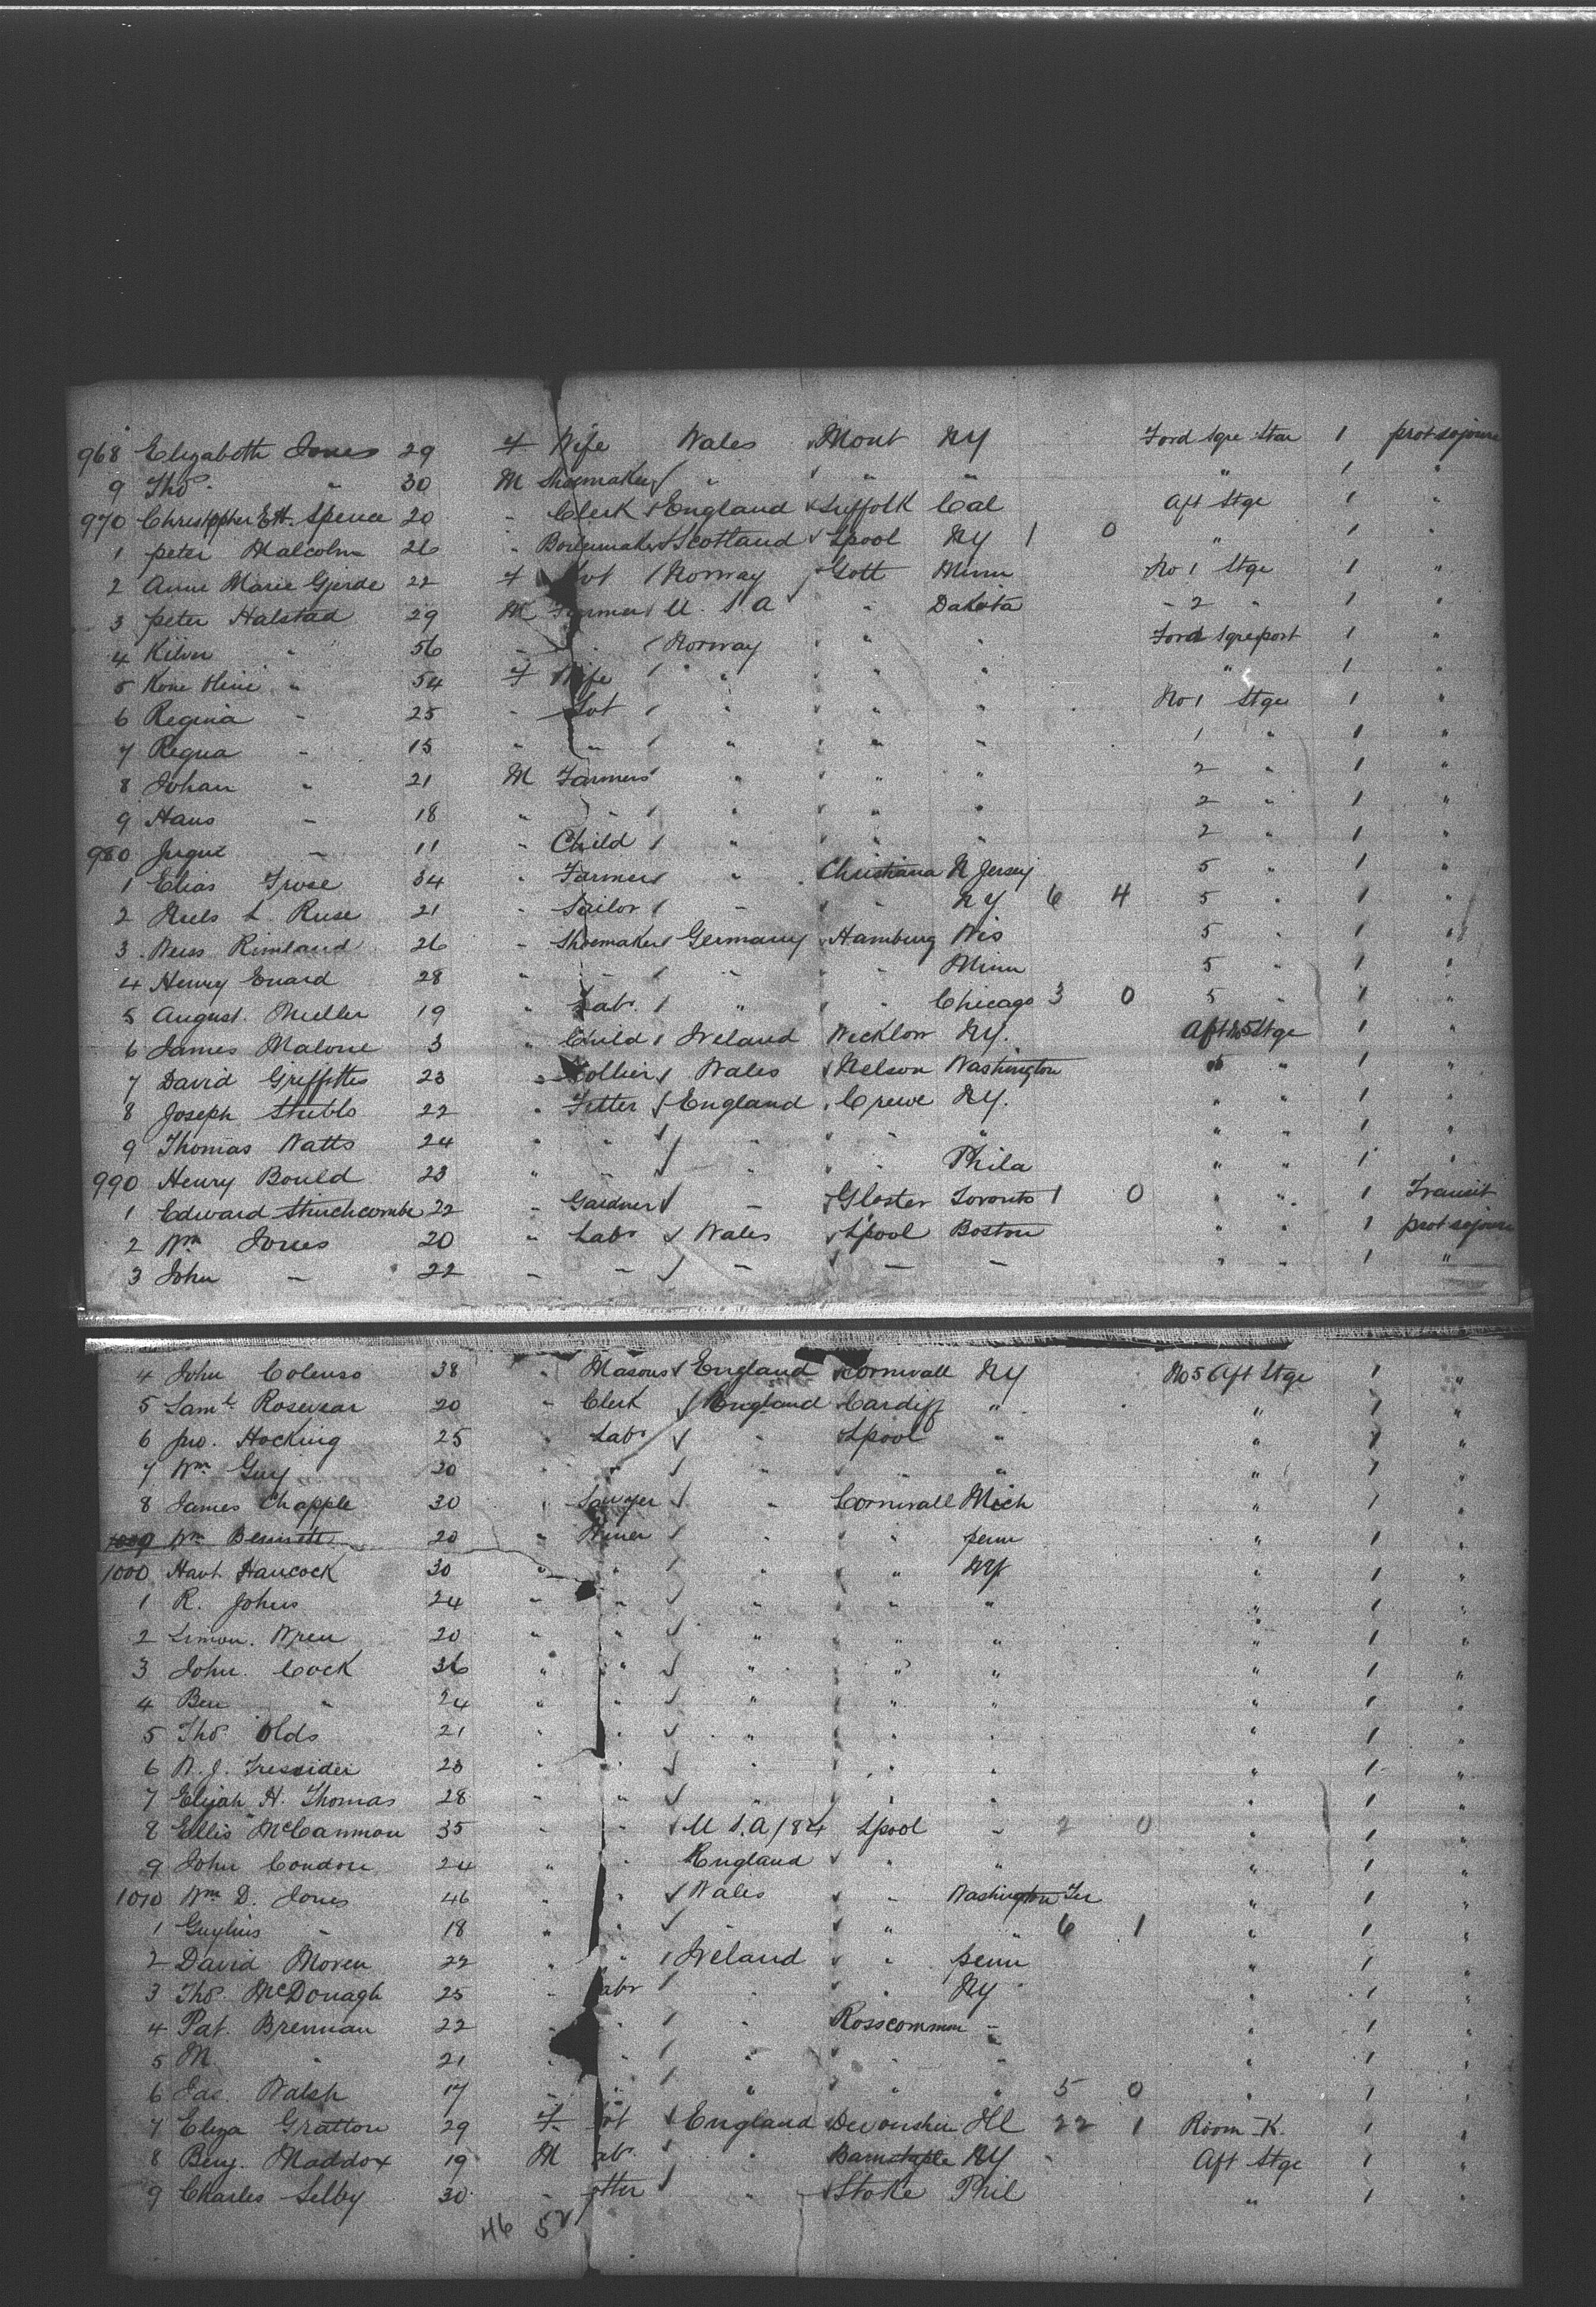 968 Elizabeth Jones 29 f Wife Wales Mont NY Forwd Sqre Star 1 prot sojourn
9 Thos " 30 M Shoemaker " " " " 1 "
970 Christopher E H. Spence 20 " Clerk England Suffolk Cal Aft Stge 1 "
1 peter Malcolm 26 " Boilermaker Scotland Lpool NY 1 0 " 1 "
2 Anne Marie Gjerde 22 f Norway Gott Minn No 1 Stge 1 "
3 peter Halstad 29 M Farmer U. S A " Dakota " 2 " 1 "
4 " 56 " " Norway " " Forwd Sqre port 1 "
5 " 54 f Wife " " " " 1 "
6 Regina " 25 " " " " No 1 Stge 1 "
7 Regna " 15 " " " " " 1 " 1 "
8 Johan " 21 M Farmer " " " 2 " 1 "
9 Hans " 18 " " " " " 2 " 1 "
980 " 11 " Child " " " 2 " 1 "
1 Elias 34 " Farmer " Christiana N Jersey 5 1 "
2 Neels L Ruse 21 " Sailor " " NY 6 4 5 " 1 "
3 Rimland 26 " Shoemaker Germany Hamburg Wis 5 " 1 "
4 Henry Enard 28 " " " " Minn 5 " 1 "
5 August. Muller 19 " Lab. " " Chicago 3 0 5 " 1 "
6 James Malone 3 " Child Ireland Wicklow NY. Aft Stge 1 "
7 David Griffiths 23 " Collier Wales Nelson Washington " 1 "
8 Joseph Stubbs 22 " Fitter England Crewe NY. " " 1 "
9 Thomas Watts 24 " " " " " " " 1 "
990 Henry Bould 23 " " " " Phila " " 1 "
1 Edward Stinchcombe 22 " Gardner " Gloster Toronto 1 0 " " 1 Transit
2 Wm Jones 20 " Labr Wales Lpool Boston " " 1 prot sojourn
3 John " 22 " " " " " " " 1 "
4 John Colenso 38 " Masons England Cornwall NY No 5 Aft Stge 1 "
5 Saml. Rosevear 20 " Clerk England Cardiff " " 1 "
6 Jno. Hocking 25 " Labr " Lpool " " 1 "
7 Wm Guy 20 " " " " " " 1 "
8 James Chapple 30 " Sawyer " Cornwall Mich " 1 "
Wm Bennett 20 " Miner " " penn " 1 "
1000 Hancock 30 " " " " NY " 1 "
1 R. Johns 24 " " " " " " 1 "
2 Simon. Wren 20 " " " " " " 1 "
3 John. Cock 36 " " " " " " 1 "
4 Ben " 24 " " " " " " 1 "
5 Thos. Olds 21 " " " " " " 1 "
6 W. J. Tressider 23 " " " " " " 1 "
7 Elijah H. Thomas 28 " " " " " " 1 "
8 Ellis McCammon 35 " " U S. A Lpool " 2 0 " 1 "
9 John Condon 24 " " England " " " 1 "
1010 Wm D. Jones 46 " " Wales " Washington Ter " 1 "
1 " 18 " " " " " 6 1 " 1 "
2 David Moren 22 " " Ireland " penn " 1 "
3 Thos. McDonagh 25 " Labr " " NY " 1 "
4 Pat. Brennan 22 " " " Rosscommon " " 1 "
5 M. " 21 " " " " " " 1 "
6 Jas. Walsh 17 " " " " " 5 0 " 1 "
7 Eliza Gratton 29 f England Devonshire Ill 22 1 Room K. 1 "
8 Benj. Maddox 19 M " Barnstaple NY " Aft Stge 1 "
9 Charles Selby 30 " " Stoke Phil " 1 "
46 52